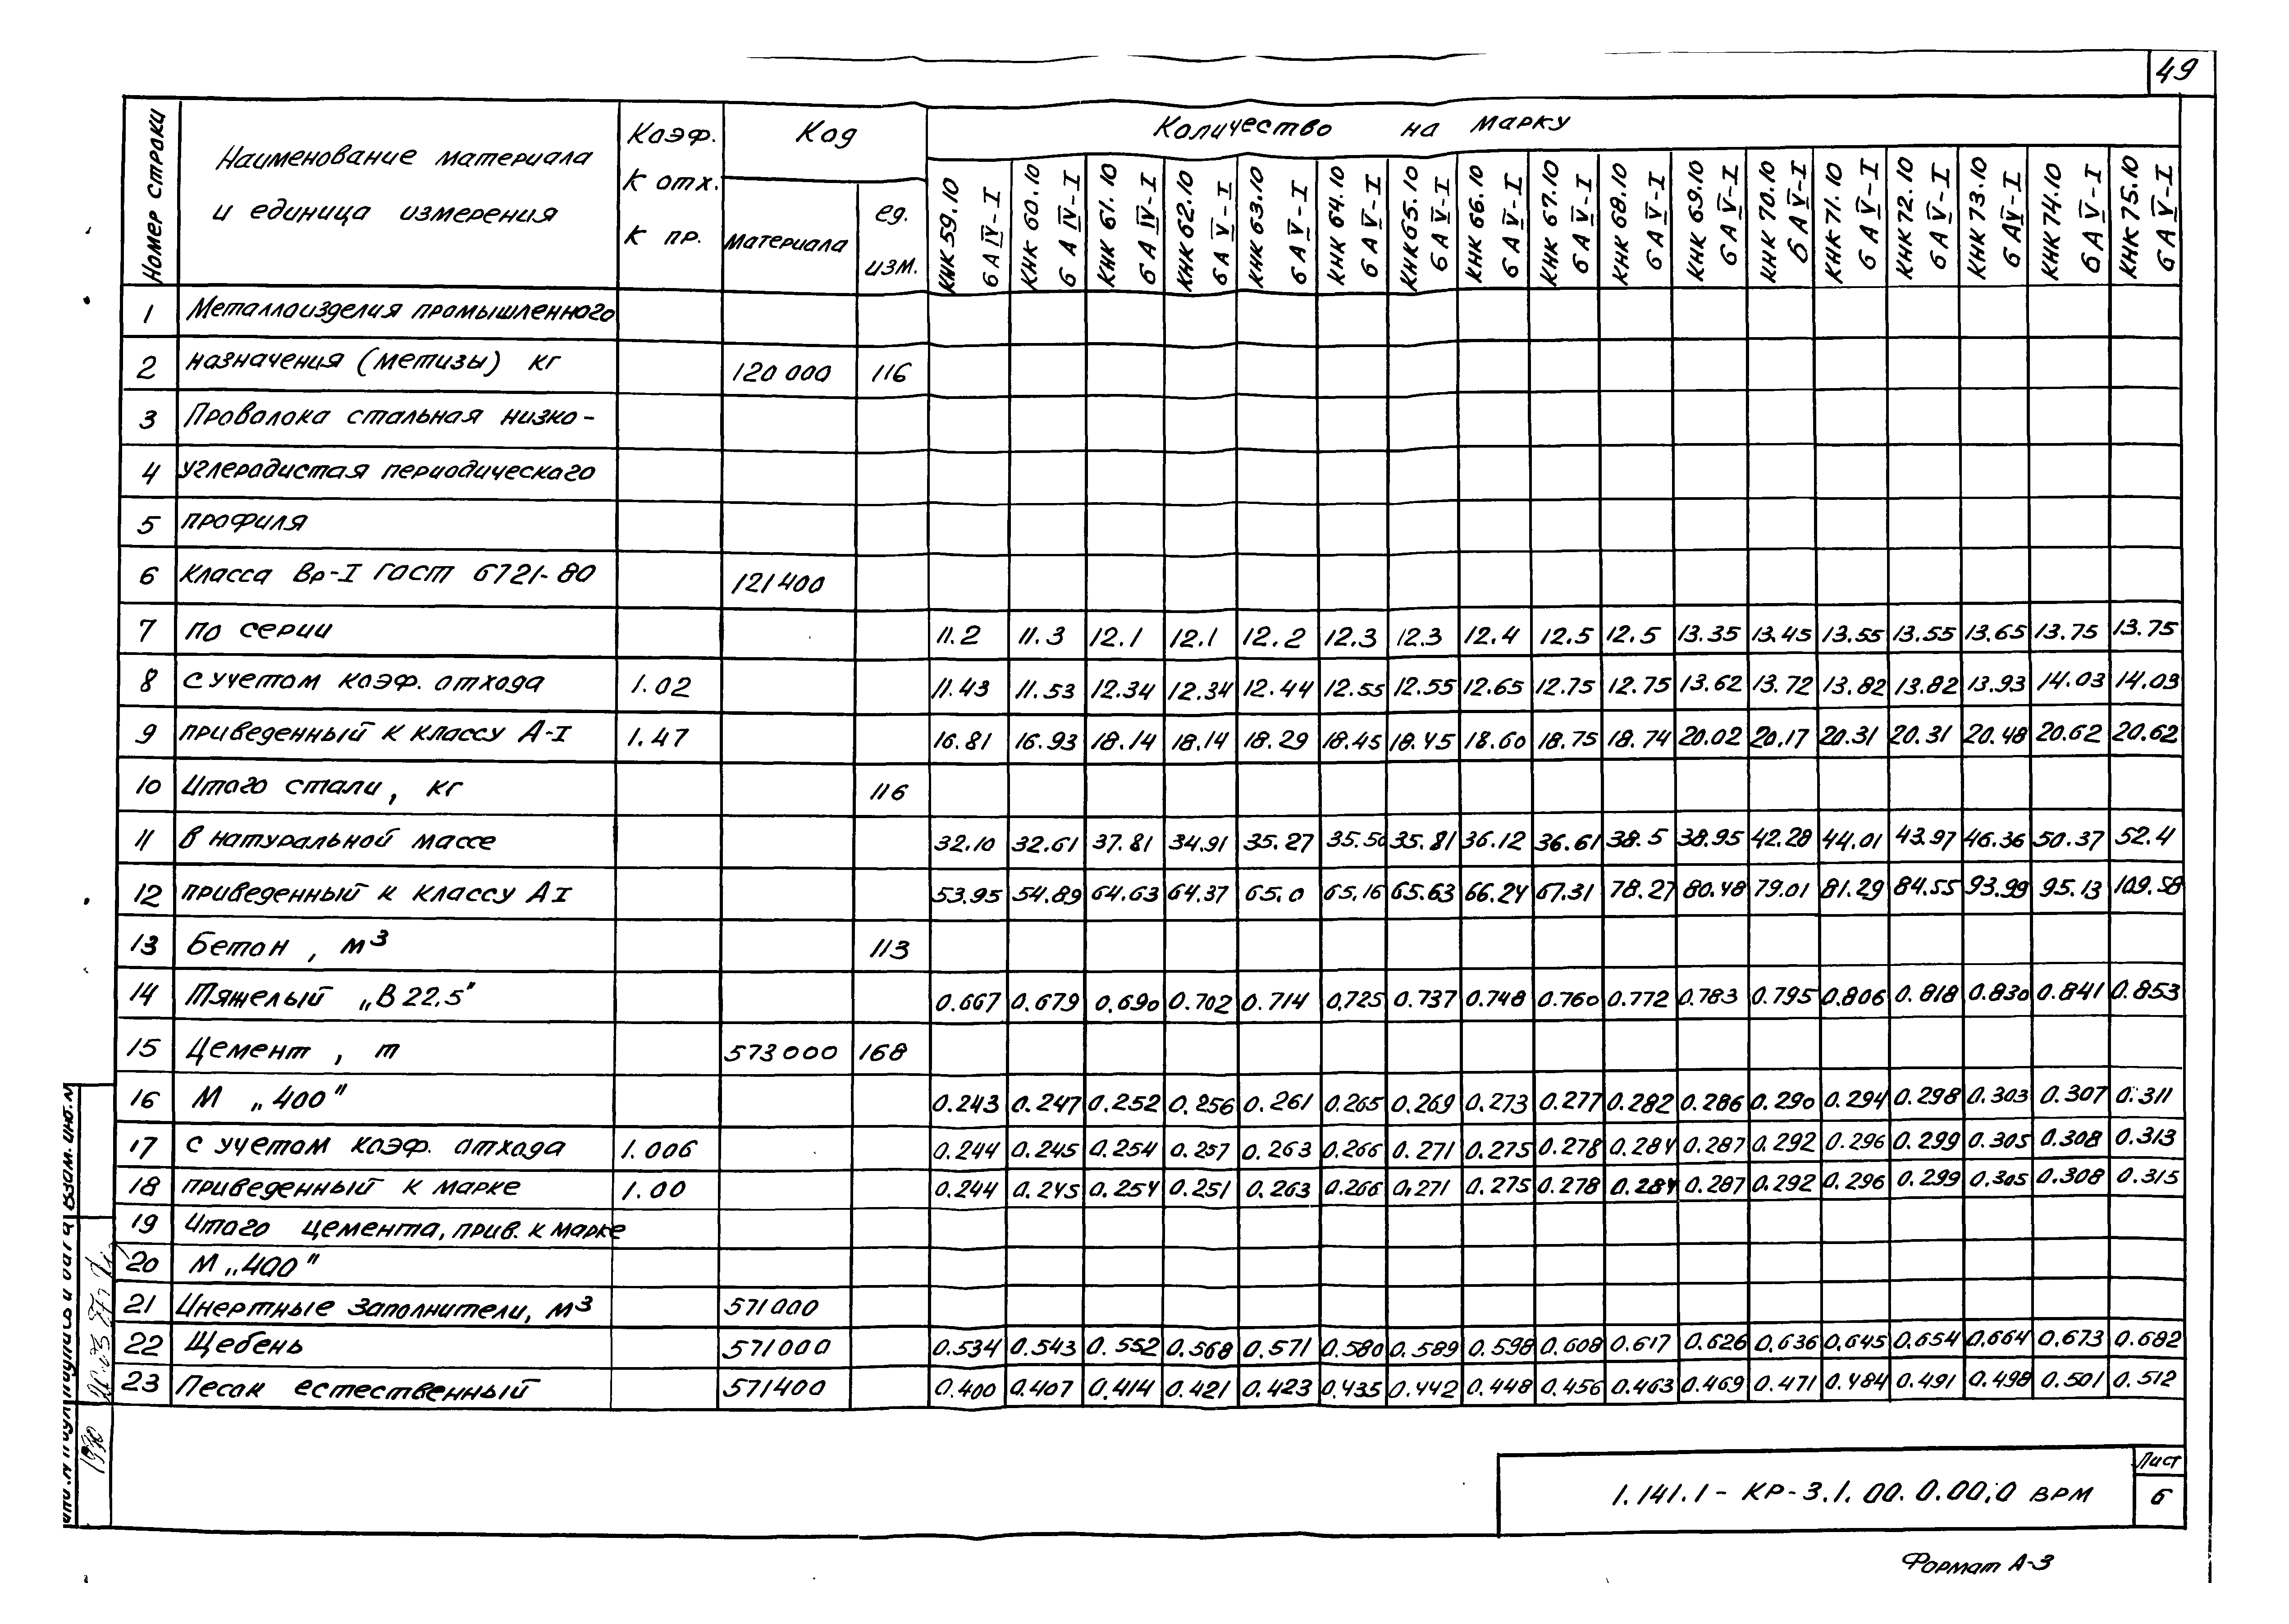 49
Номер строки
Наименование материала
и единица измерения
Коэф.
К отх.
К пр.
Код
материала
ед.
изм.
Количество на марку
КНК 59.10 6 А IV-I
КНК 60.10 6 А IV-I
КНК 61.10 6 А IV-I
КНК 62.10 6 А V-I
КНК 63.10 6 А V-I
КНК 64.10 6 А V-I
КНК 65.10 6 А V-I
КНК 66.10 6 А V-I
КНК 67.10 6 А V-I
КНК 68.10 6 А V-I
КНК 69.10 6 А V-I
КНК 70.10 6 А V-I
КНК 71.10 6 А V-I
КНК 72.10 6 А V-I
КНК 73.10 6 А V-I
КНК 74.10 6 А V-I
КНК 75.10 6 А V-I
1 Металлоизделия промышленного
2 назначения (метизы) кг 120 000 116
3 Проволока стальная низко-
4 углеродистая периодического
5 профиля
6 класса Вр-I ГОСТ 6721-80 121400
7 по серии 11.2 11.3 12.1 12.1 12.2 12.3 12.3 12.4 12.5 12.5 13.35 13.45 13.55 13.55 13.65 13.75 13.75
8 с учетом коэф. отхода 1.02 11.43 11.53 12.34 12.34 12.44 12.55 12.55 12.65 12.75 12.75 13.62 13.72 13.82 13.82 13.93 14.03 14.03
9 приведенный к классу А-I 1.47 16.81 16.93 18.14 18.14 18.29 18.45 18.45 18.60 18.75 18.74 20.02 20.17 20.31 20.31 20.48 20.62 20.62
10 Итого стали, кг 116
11 в натуральной массе 32.10 32.61 37.81 34.91 35.27 35.50 35.81 36.12 36.61 38.5 38.95 42.28 44.01 43.97 46.36 50.37 52.4
12 приведенный к классу А I 53.95 54.89 64.63 64.37 65.0 65.16 65.63 66.24 67.31 78.27 80.48 79.01 81.29 84.55 93.99 95.13 109.58
13 Бетон, м3 113
14 Тяжелый „В 22.5" 0.667 0.679 0.690 0.702 0.714 0.725 0.737 0.748 0.760 0.772 0.783 0.795 0.806 0.818 0.830 0.841 0.853
15 Цемент, т 573000 168
16 М „400" 0.243 0.247 0.252 0.256 0.261 0.265 0.269 0.273 0.277 0.282 0.286 0.290 0.294 0.298 0.303 0.307 0.311
17 с учетом коэф. отхода 1.006 0.244 0.245 0.254 0.257 0.263 0.266 0.271 0.275 0.278 0.284 0.287 0.292 0.296 0.299 0.305 0.308 0.313
18 приведенный к марке 1.00 0.244 0.245 0.254 0.251 0.263 0.266 0.271 0.275 0.278 0.284 0.287 0.292 0.296 0.299 0.305 0.308 0.315
19 Итого цемента, прив. к марке
20 М „400"
21 Инертные заполнители, м3 571000
22 Щебень 571000 0.534 0.543 0.552 0.568 0.571 0.580 0.589 0.598 0.608 0.617 0.626 0.636 0.645 0.654 0.664 0.673 0.682
23 Песок естественный 571400 0.400 0.407 0.414 0.421 0.423 0.435 0.442 0.448 0.456 0.463 0.469 0.471 0.484 0.491 0.498 0.501 0.512
1.141.1 - КР-3.1.00.0.00.0 ВРМ
Лист
6
Формат А-3